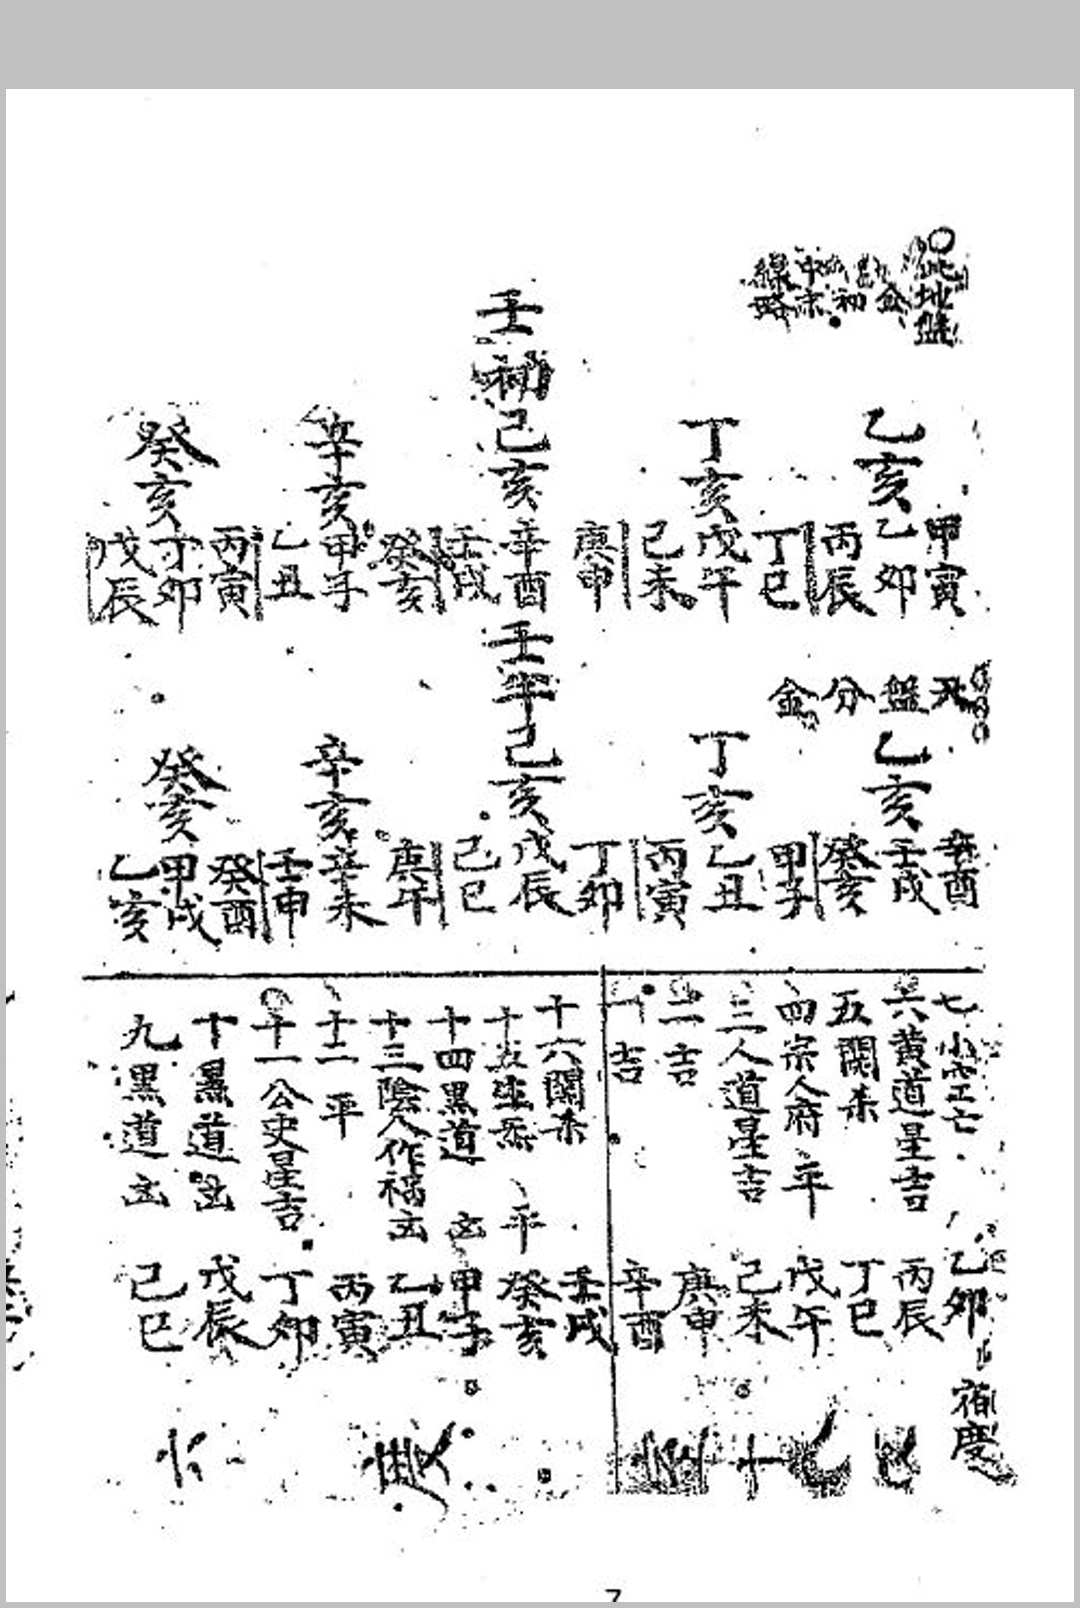 ○此地盤
金
初
中末
線略
壬初
乙亥
丁亥
己亥
辛亥
癸亥
甲寅
乙卯
丙辰
丁巳
戊午
己未
庚申
辛酉
壬戌
癸亥
甲子
乙丑
丙寅
丁卯
戊辰
盤
分
金
壬半
乙亥
丁亥
己亥
辛亥
癸亥
辛酉
壬戌
癸亥
甲子
乙丑
丙寅
丁卯
戊辰
己巳
庚午
辛未
壬申
癸酉
甲戌
乙亥
七小空亡
六黃道星吉
五関杀
四宗人府平
三人道星吉
二吉
一吉
十六関杀
十五 平
十四黒道凶
十三陰人作福凶
十二平
十一公吏星吉
十黒道凶
九黒道凶
乙卯
丙辰
丁巳
戊午
己未
庚申
辛酉
壬戌
癸亥
甲子
乙丑
丙寅
丁卯
戊辰
己巳
宿度
7